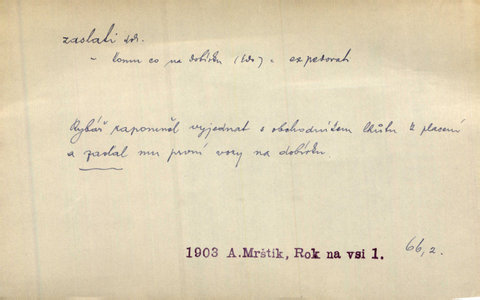 zaslati dok.
– komu co na dobírku (kdo) = expedovati
Rybář zapomněl vyjednat s obchodníkem lhůtu k placení
a zaslal mu první vozy na dobírku.
1903 A.Mrštík, Rok na vsi 1. 66, 2.